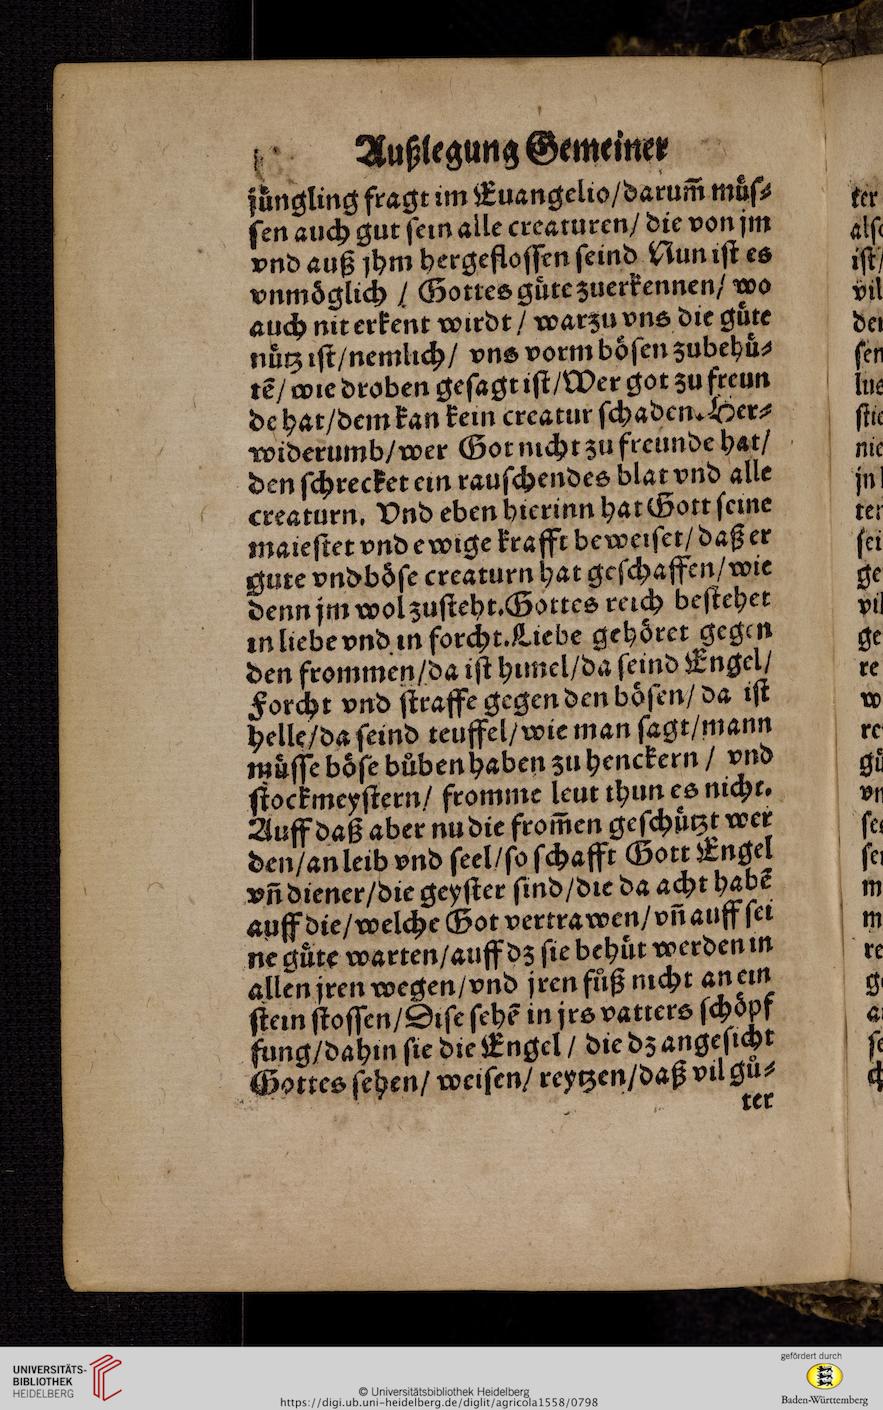 Außlegung Gemeiner
jüngling fragt im Euangelio/darum̃ muͤſ⸗
ſen auch gut ſein alle creaturen/ die von jm
vnd auß jhm hergefloſſen ſeind Nun iſt es
vnmoͤglich / Gottes guͤte zuerkennen/ wo
auch nit erkent wirdt / warzu vns die guͤte
nuͤtz iſt/nemlich/ vns vorm boͤſen zubehuͤ⸗
tẽ/ wie droben geſagt iſt/Wer got zu freun
de hat/dem kan kein creatur ſchaden. Her⸗
widerumb/wer Got nicht zu freunde hat/
den ſchrecket ein rauſchendes blat vnd alle
creaturn. Vnd eben hierinn hat Gott ſeine
maieſtet vnd ewige krafft beweiſet/ daß er
gute vnd boͤſe creaturn hat geſchaffen/ wie
denn jm wol zuſteht. Gottes reich beſtehet
in liebe vnd in forcht. Liebe gehoͤret gegen
den frommen/da iſt himel/da ſeind Engel/
Forcht vnd ſtraffe gegen den boͤſen/ da iſt
helle/da ſeind teuffel/wie man ſagt/mann
muͤſſe boͤſe buͤben haben zu henckern / vnd
ſtockmeyſtern/ fromme leut thun es nicht.
Auff daß aber nu die from̃en geſchuͤtzt wer
den/an leib vnd ſeel/ſo ſchafft Gott Engel
vñ diener/die geyſter ſind/die da acht habẽ
auff die/welche Got vertrawen/vñ auff ſei
ne guͤte warten/auff dz ſie behuͤt werden in
allen jren wegen/vnd jren fuͤß nicht an ein
ſtein ſtoſſen/Diſe ſehẽ in jrs vatters ſchoͤpf
fung/dahin ſie die Engel / die dz angeſicht
Gottes ſehen/ weiſen/ reytzen/daß vil guͤ⸗
ter
ker
alſ
iſt/
vil
ſen
ſtic
nic
ter
ſei
ge
vil
ge
re
w
m
m
re
UNIVERSITÄTS-
BIBLIOTHEK
HEIDELBERG
© Universitätsbibliothek Heidelberg
https://digi.ub.uni-heidelberg.de/diglit/agricola1558/0798
gefördert durch
Baden-Württemberg